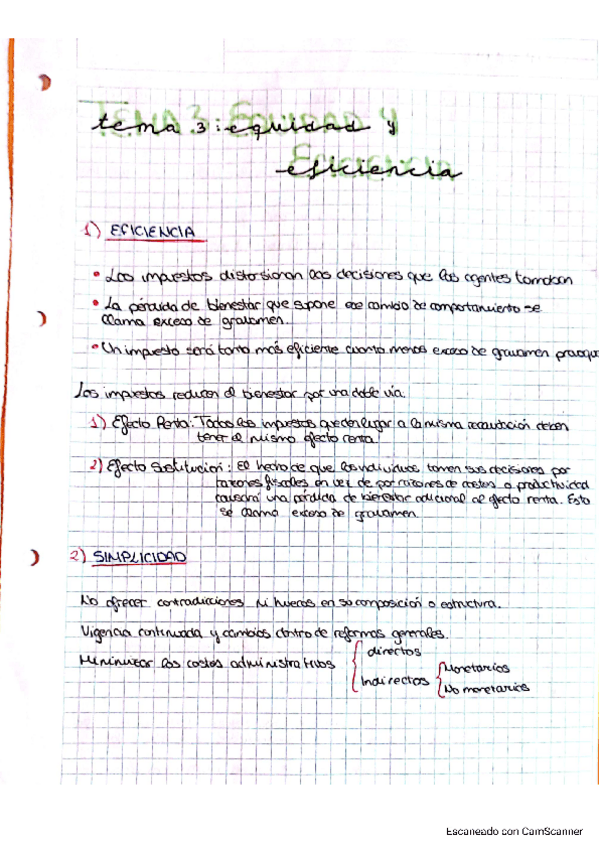 tema 3: equidad y
eficiencia
1) EFICIENCIA
• Los impuestos distorsionan las decisiones que los agentes tomaban
• La pérdida de bienestar que supone ese cambio de comportamiento se
llama exceso de gravamen.
• Un impuesto será tanto más eficiente cuanto menos exceso de gravamen
Los impuestos reducen el bienestar por una doble vía.
1) Efecto Renta: Todos los impuestos que den lugar a la misma recaudación deben
tener el mismo efecto renta.
2) Efecto Sustitución: El hecho de que los individuos tomen sus decisiones por
razones fiscales en vez de por razones de costes o productividad
causará una pérdida de bienestar adicional al efecto renta. Esto
se llama exceso de gravamen.
2) SIMPLICIDAD
No ofrecer contradicciones ni huecos en su composición o estructura.
Vigencia continuada y cambios dentro de reformas generales.
Minimizar los costes administrativos { directos
Indirectos { Monetarios
No monetarios
Escaneado con CamScanner